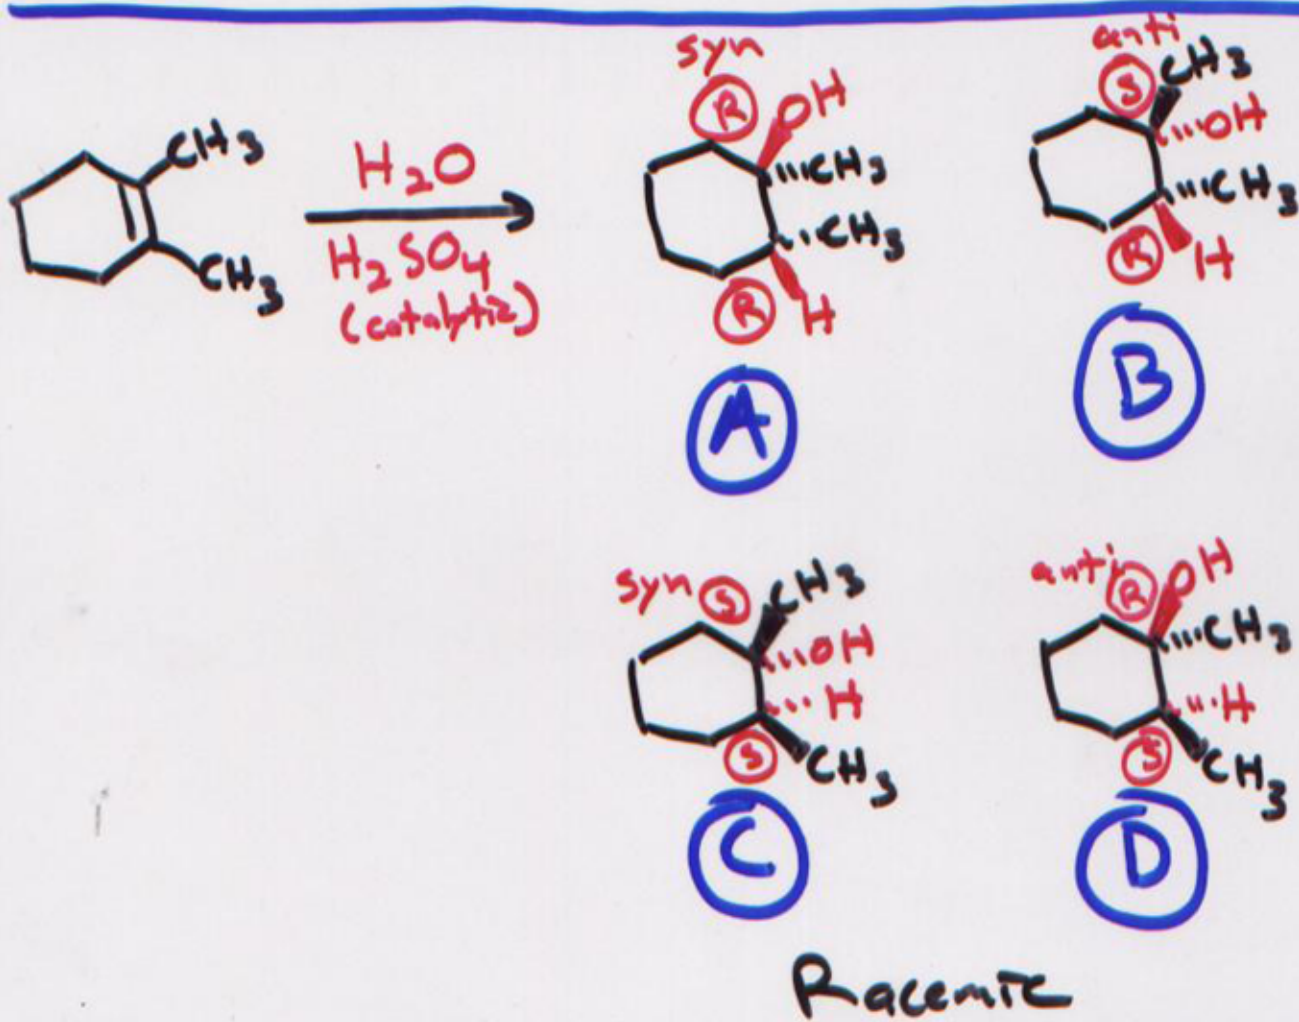 CH3
CH3
H2O
H2SO4
(catalytic)
syn
R
OH
CH3
CH3
R
H
A
anti
S
CH3
OH
CH3
R
H
B
syn
S
CH3
OH
H
S
CH3
C
anti
R
OH
CH3
H
S
CH3
D
Racemic